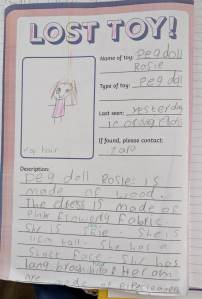 LOST TOY!
Name of toy: Peg doll
Rosie
Type of toy: Peg doll
Last seen: Yesterday
in
If found, please contact:
Description:
Peg doll Rosie is
made of wood.
The dress is made of
Pink flowery fabric.
She is She is
11cm tall. She has a
face. She has
long hair. Her arms
are made of pipecleaners